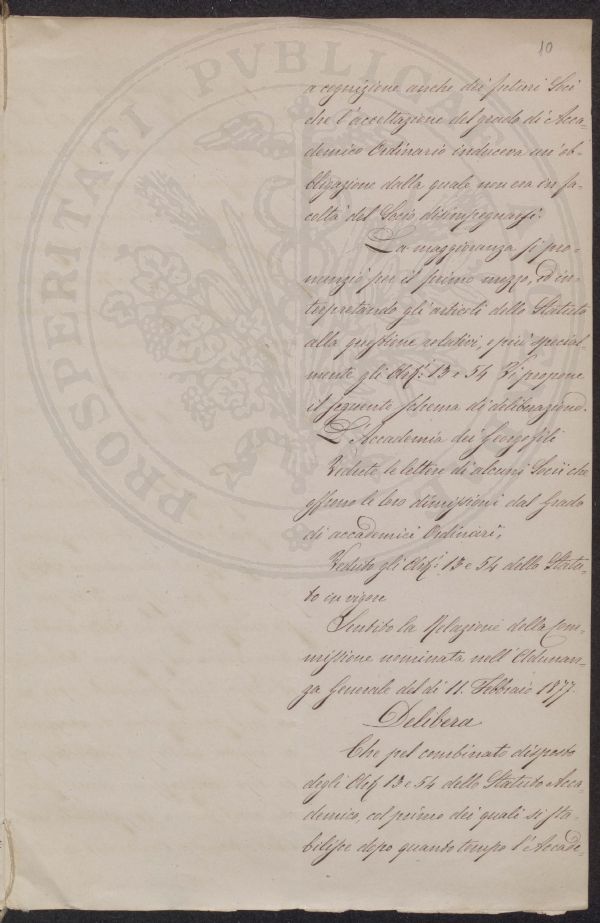 10
a cognizione anche dei futuri Soci
che l'accettazione del grado di Acca=
demico Ordinario induceva un'ob=
bligazione dalla quale non era in fa=
coltà del Socio disimpegnarsi.
La maggioranza si pro=
nunziò per il primo mezzo, ed in=
terpretando gli articoli dello Statuto
alla questione relativi, e più special=
mente gli Art.i 13 e 54 Vi propone
il seguente schema di deliberazione.
L'Accademia dei Georgofili
Vedute le lettere di alcuni Socii che
offrono le loro dimissioni dal Grado
di accademici Ordinari;
Veduto gli Art.i 13 e 54 dello Statu=
to in vigore
Sentito la Relazione della Com=
missione nominata nell'Adunan=
za Generale del dì 11. Febbraio 1877.
Delibera
Che pel combinato disposto
degli Art. 13 e 54 dello Statuto Acca=
demico, col primo dei quali si sta=
bilisce dopo quanto tempo l'Accade=
PROSPERITATI PVBLICAE